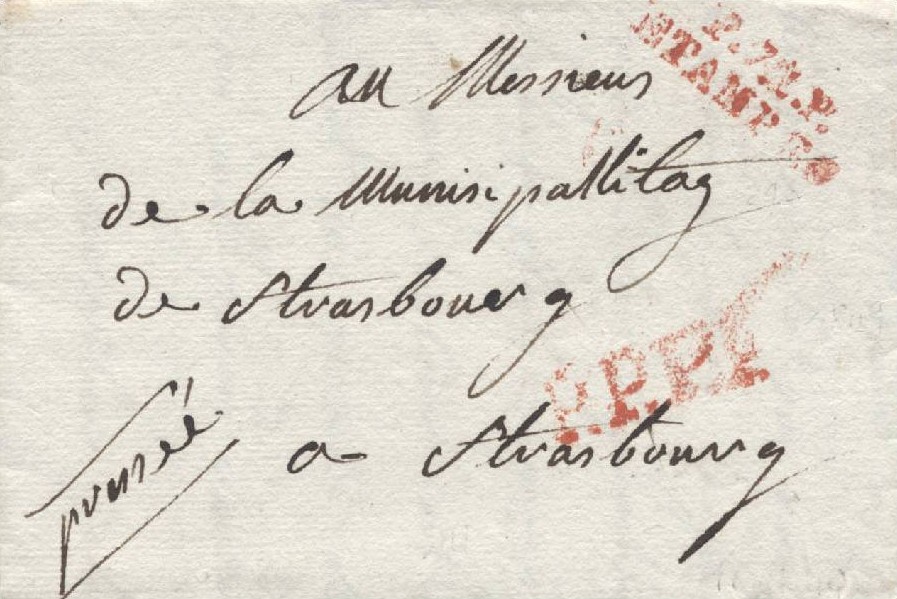 P.71.P.
ETAMPES
au Messieus
de la Munisipallitag
de Strasbouerg
P.P.P.P.
a Strasbourg
pressée